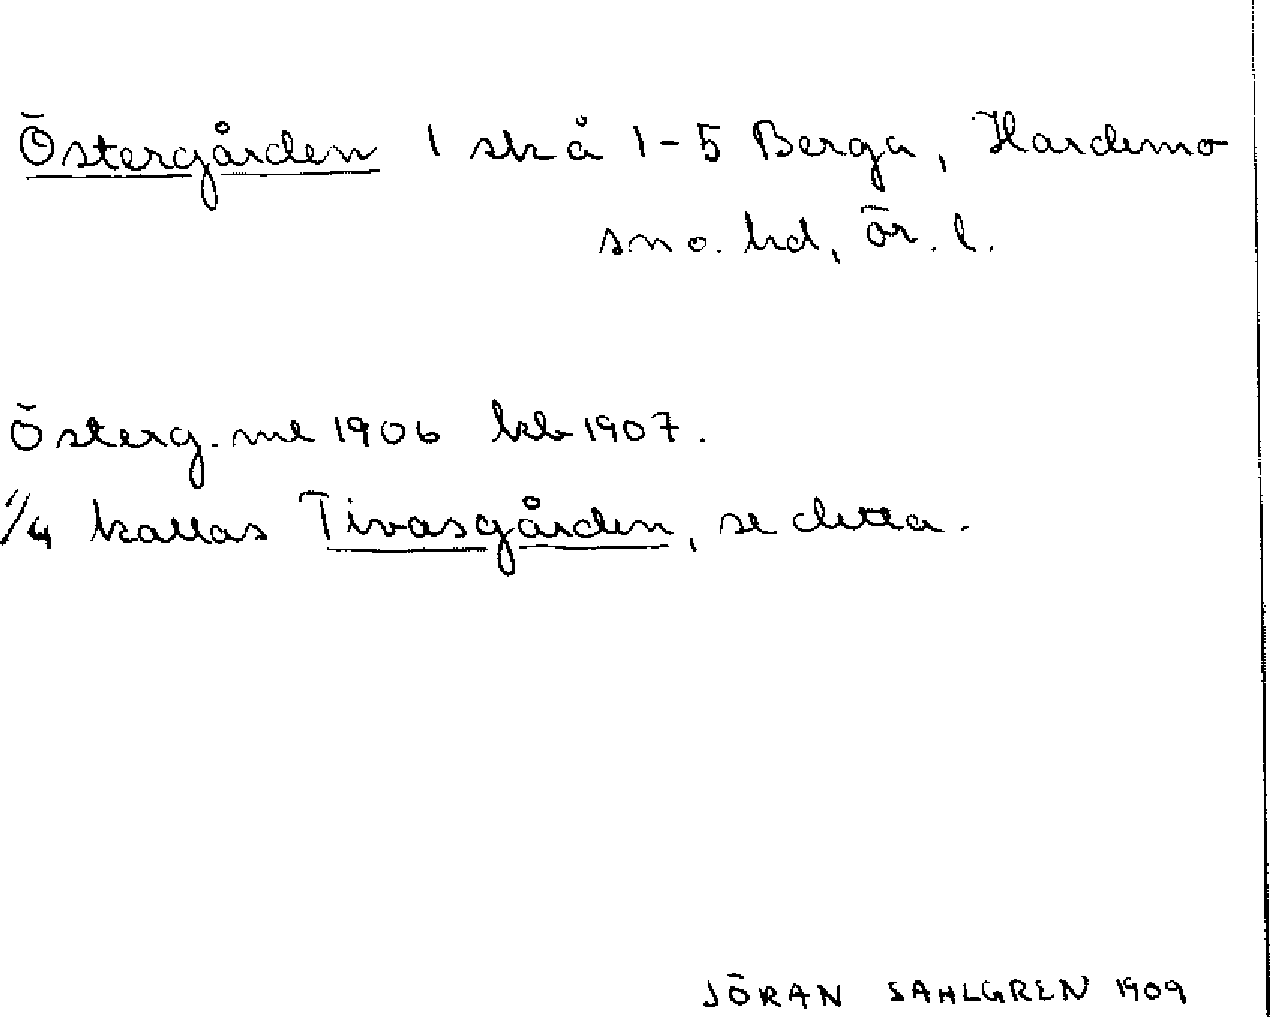 Östergården 1 sk å 1-5 Berga, Hardemo
sn o. hd, ör. l.
Österg. ml 1906 kb 1907.
1/4 kallas Tivasgården, se detta.
JÖRAN SAHLGREN 1909